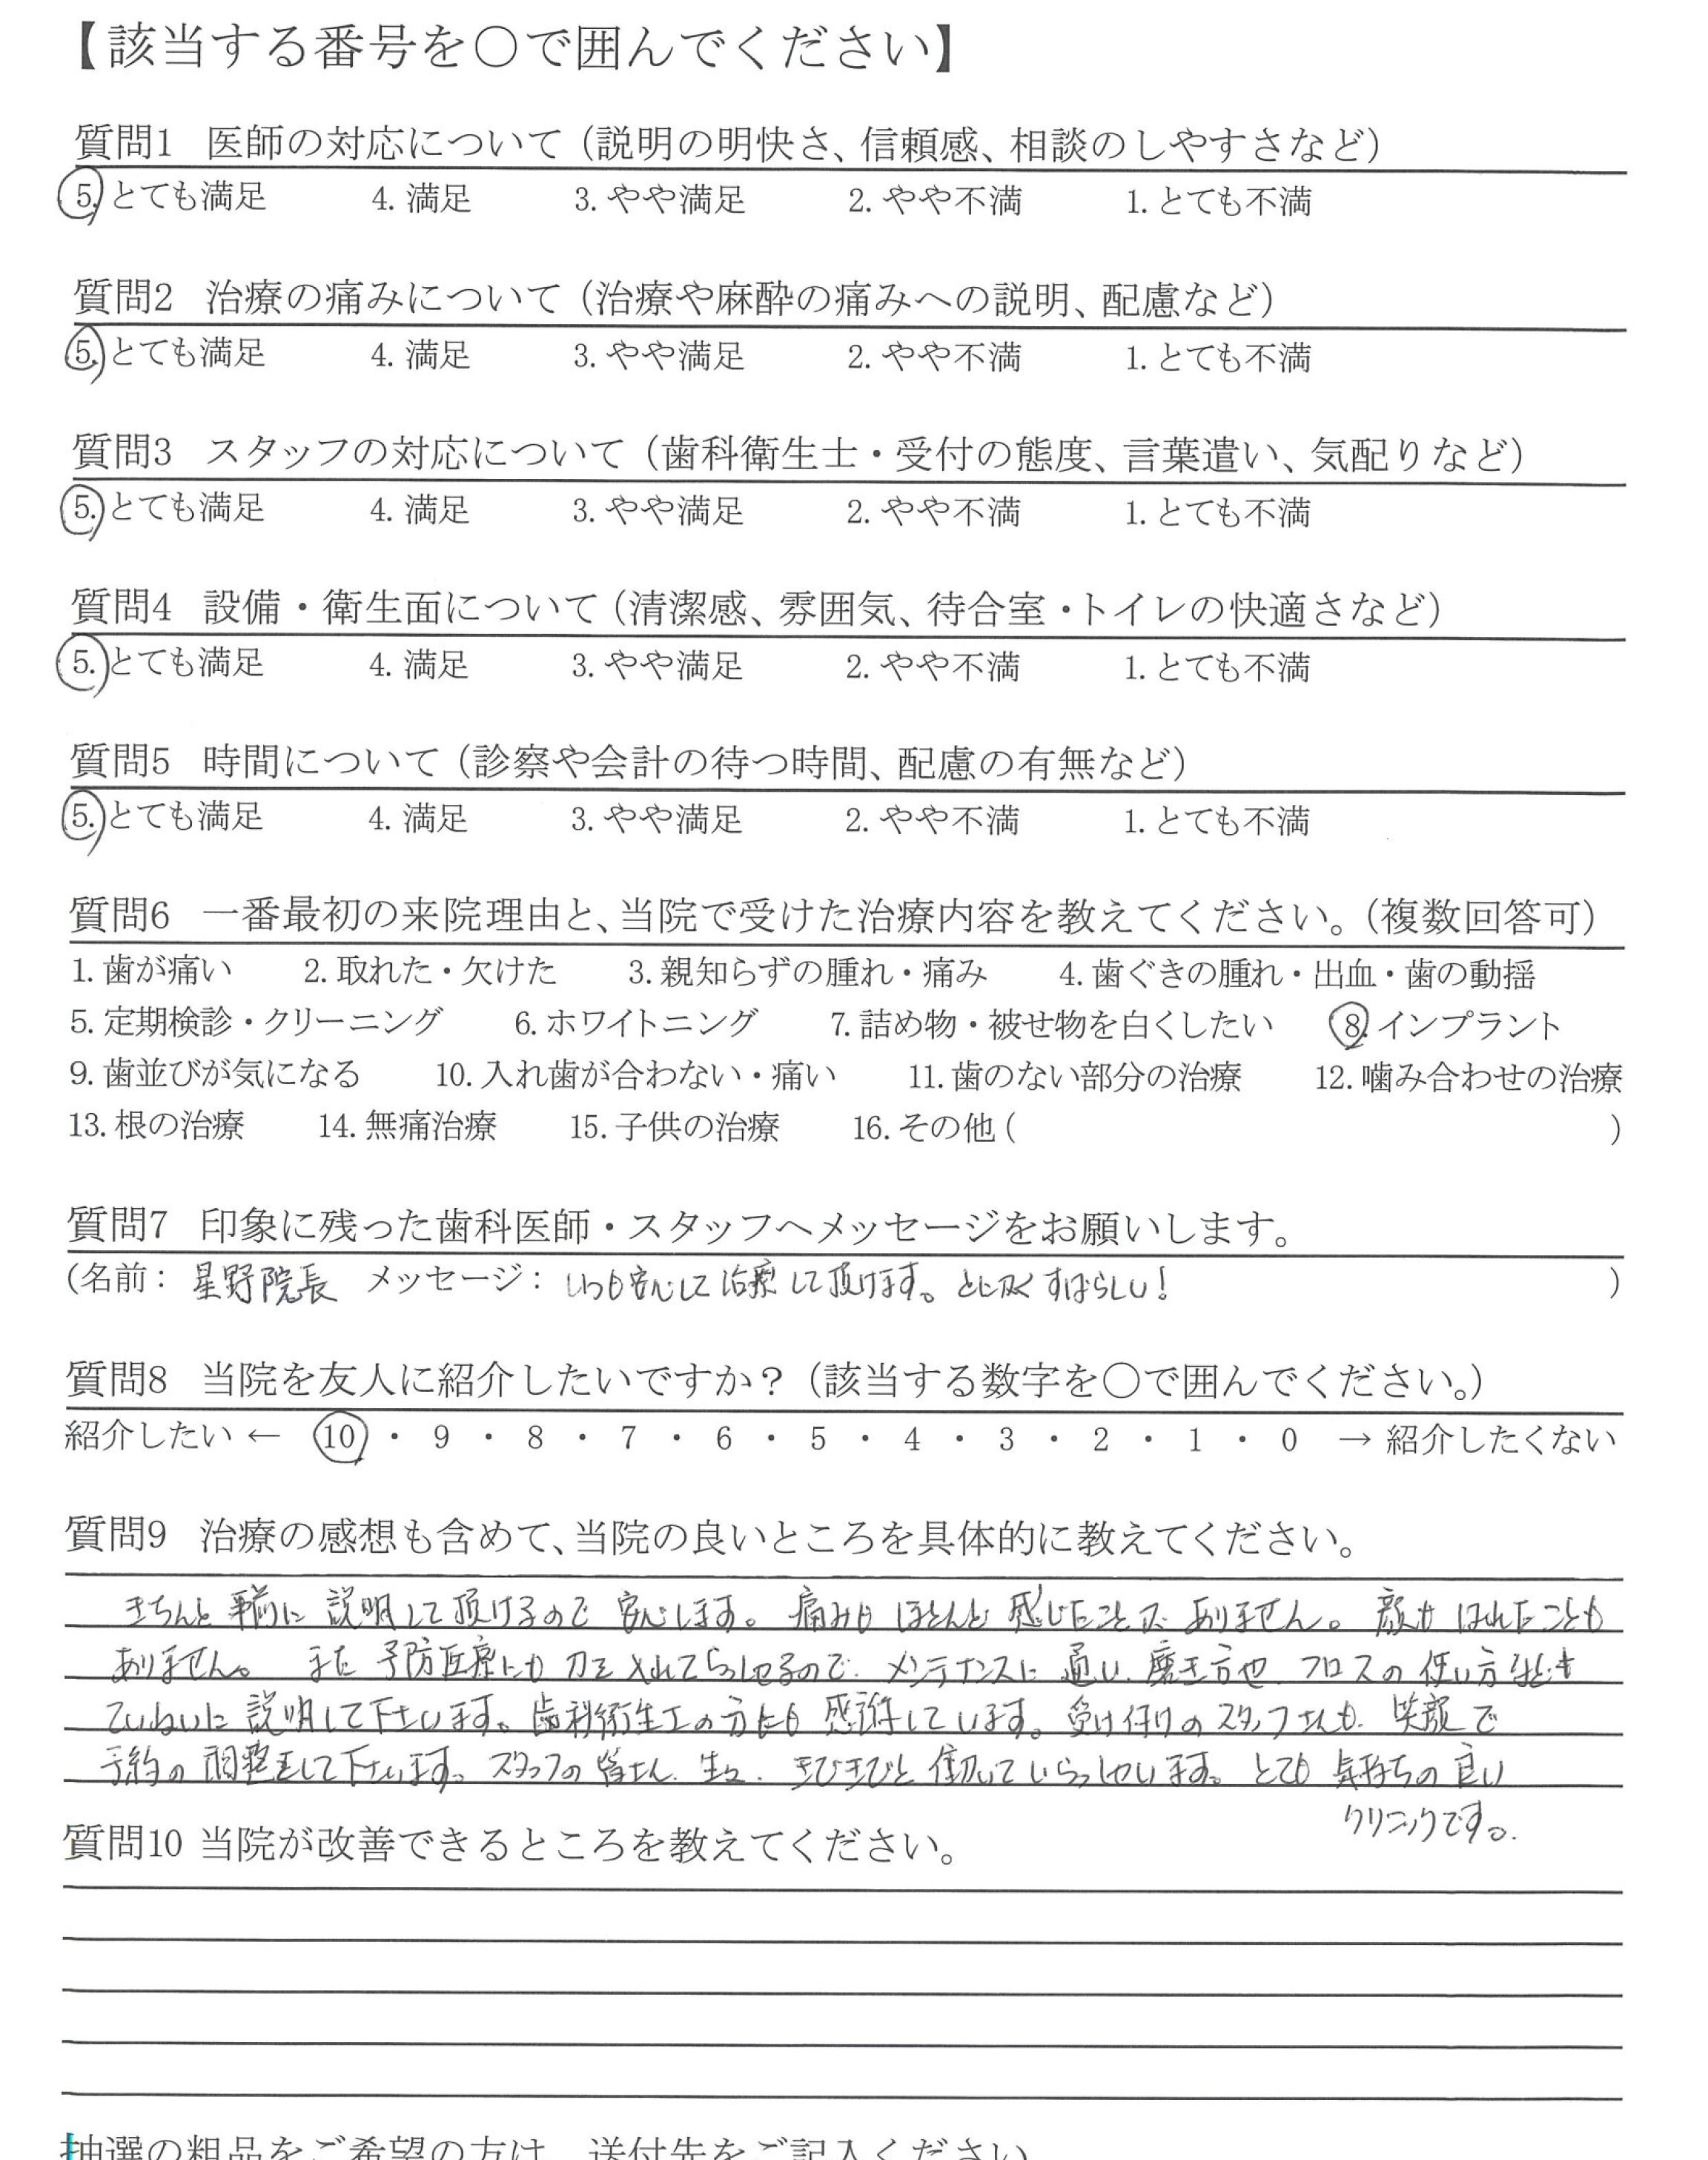 【該当する番号を○で囲んでください】
質問1 医師の対応について（説明の明快さ、信頼感、相談のしやすさなど）
5. とても満足 4. 満足 3. やや満足 2. やや不満 1. とても不満
質問2 治療の痛みについて（治療や麻酔の痛みへの説明、配慮など）
5. とても満足 4. 満足 3. やや満足 2. やや不満 1. とても不満
質問3 スタッフの対応について（歯科衛生士・受付の態度、言葉遣い、気配りなど）
5. とても満足 4. 満足 3. やや満足 2. やや不満 1. とても不満
質問4 設備・衛生面について（清潔感、雰囲気、待合室・トイレの快適さなど）
5. とても満足 4. 満足 3. やや満足 2. やや不満 1. とても不満
質問5 時間について（診察や会計の待つ時間、配慮の有無など）
5. とても満足 4. 満足 3. やや満足 2. やや不満 1. とても不満
質問6 一番最初の来院理由と、当院で受けた治療内容を教えてください。（複数回答可）
1. 歯が痛い 2. 取れた・欠けた 3. 親知らずの腫れ・痛み 4. 歯ぐきの腫れ・出血・歯の動揺
5. 定期検診・クリーニング 6. ホワイトニング 7. 詰め物・被せ物を白くしたい 8. インプラント
9. 歯並びが気になる 10. 入れ歯が合わない・痛い 11. 歯のない部分の治療 12. 噛み合わせの治療
13. 根の治療 14. 無痛治療 15. 子供の治療 16. その他（ ）
質問7 印象に残った歯科医師・スタッフへメッセージをお願いします。
（名前： 星野院長 メッセージ： いつも安心して治療して頂けます。とにかくすばらしい！ ）
質問8 当院を友人に紹介したいですか？（該当する数字を○で囲んでください。）
紹介したい ← 10 ・ 9 ・ 8 ・ 7 ・ 6 ・ 5 ・ 4 ・ 3 ・ 2 ・ 1 ・ 0 → 紹介したくない
質問9 治療の感想も含めて、当院の良いところを具体的に教えてください。
きちんと事前に説明して頂けるので安心します。痛みもほとんど感じたことがありません。顔がはれたことも
ありません。また予防医療にも力を入れてらっしゃるので、メンテナンスに通い、磨き方や フロスの使い方なども
ていねいに説明して下さいます。歯科衛生士の方にも感謝しています。受け付けのスタッフさんも、笑顔で
予約の調整をして下さいます。スタッフの皆さん、きびきびと働いていらっしゃいます。とても気持ちの良い
クリニックです。
質問10 当院が改善できるところを教えてください。
抽選の粗品をご希望の方は、送付先をご記入ください